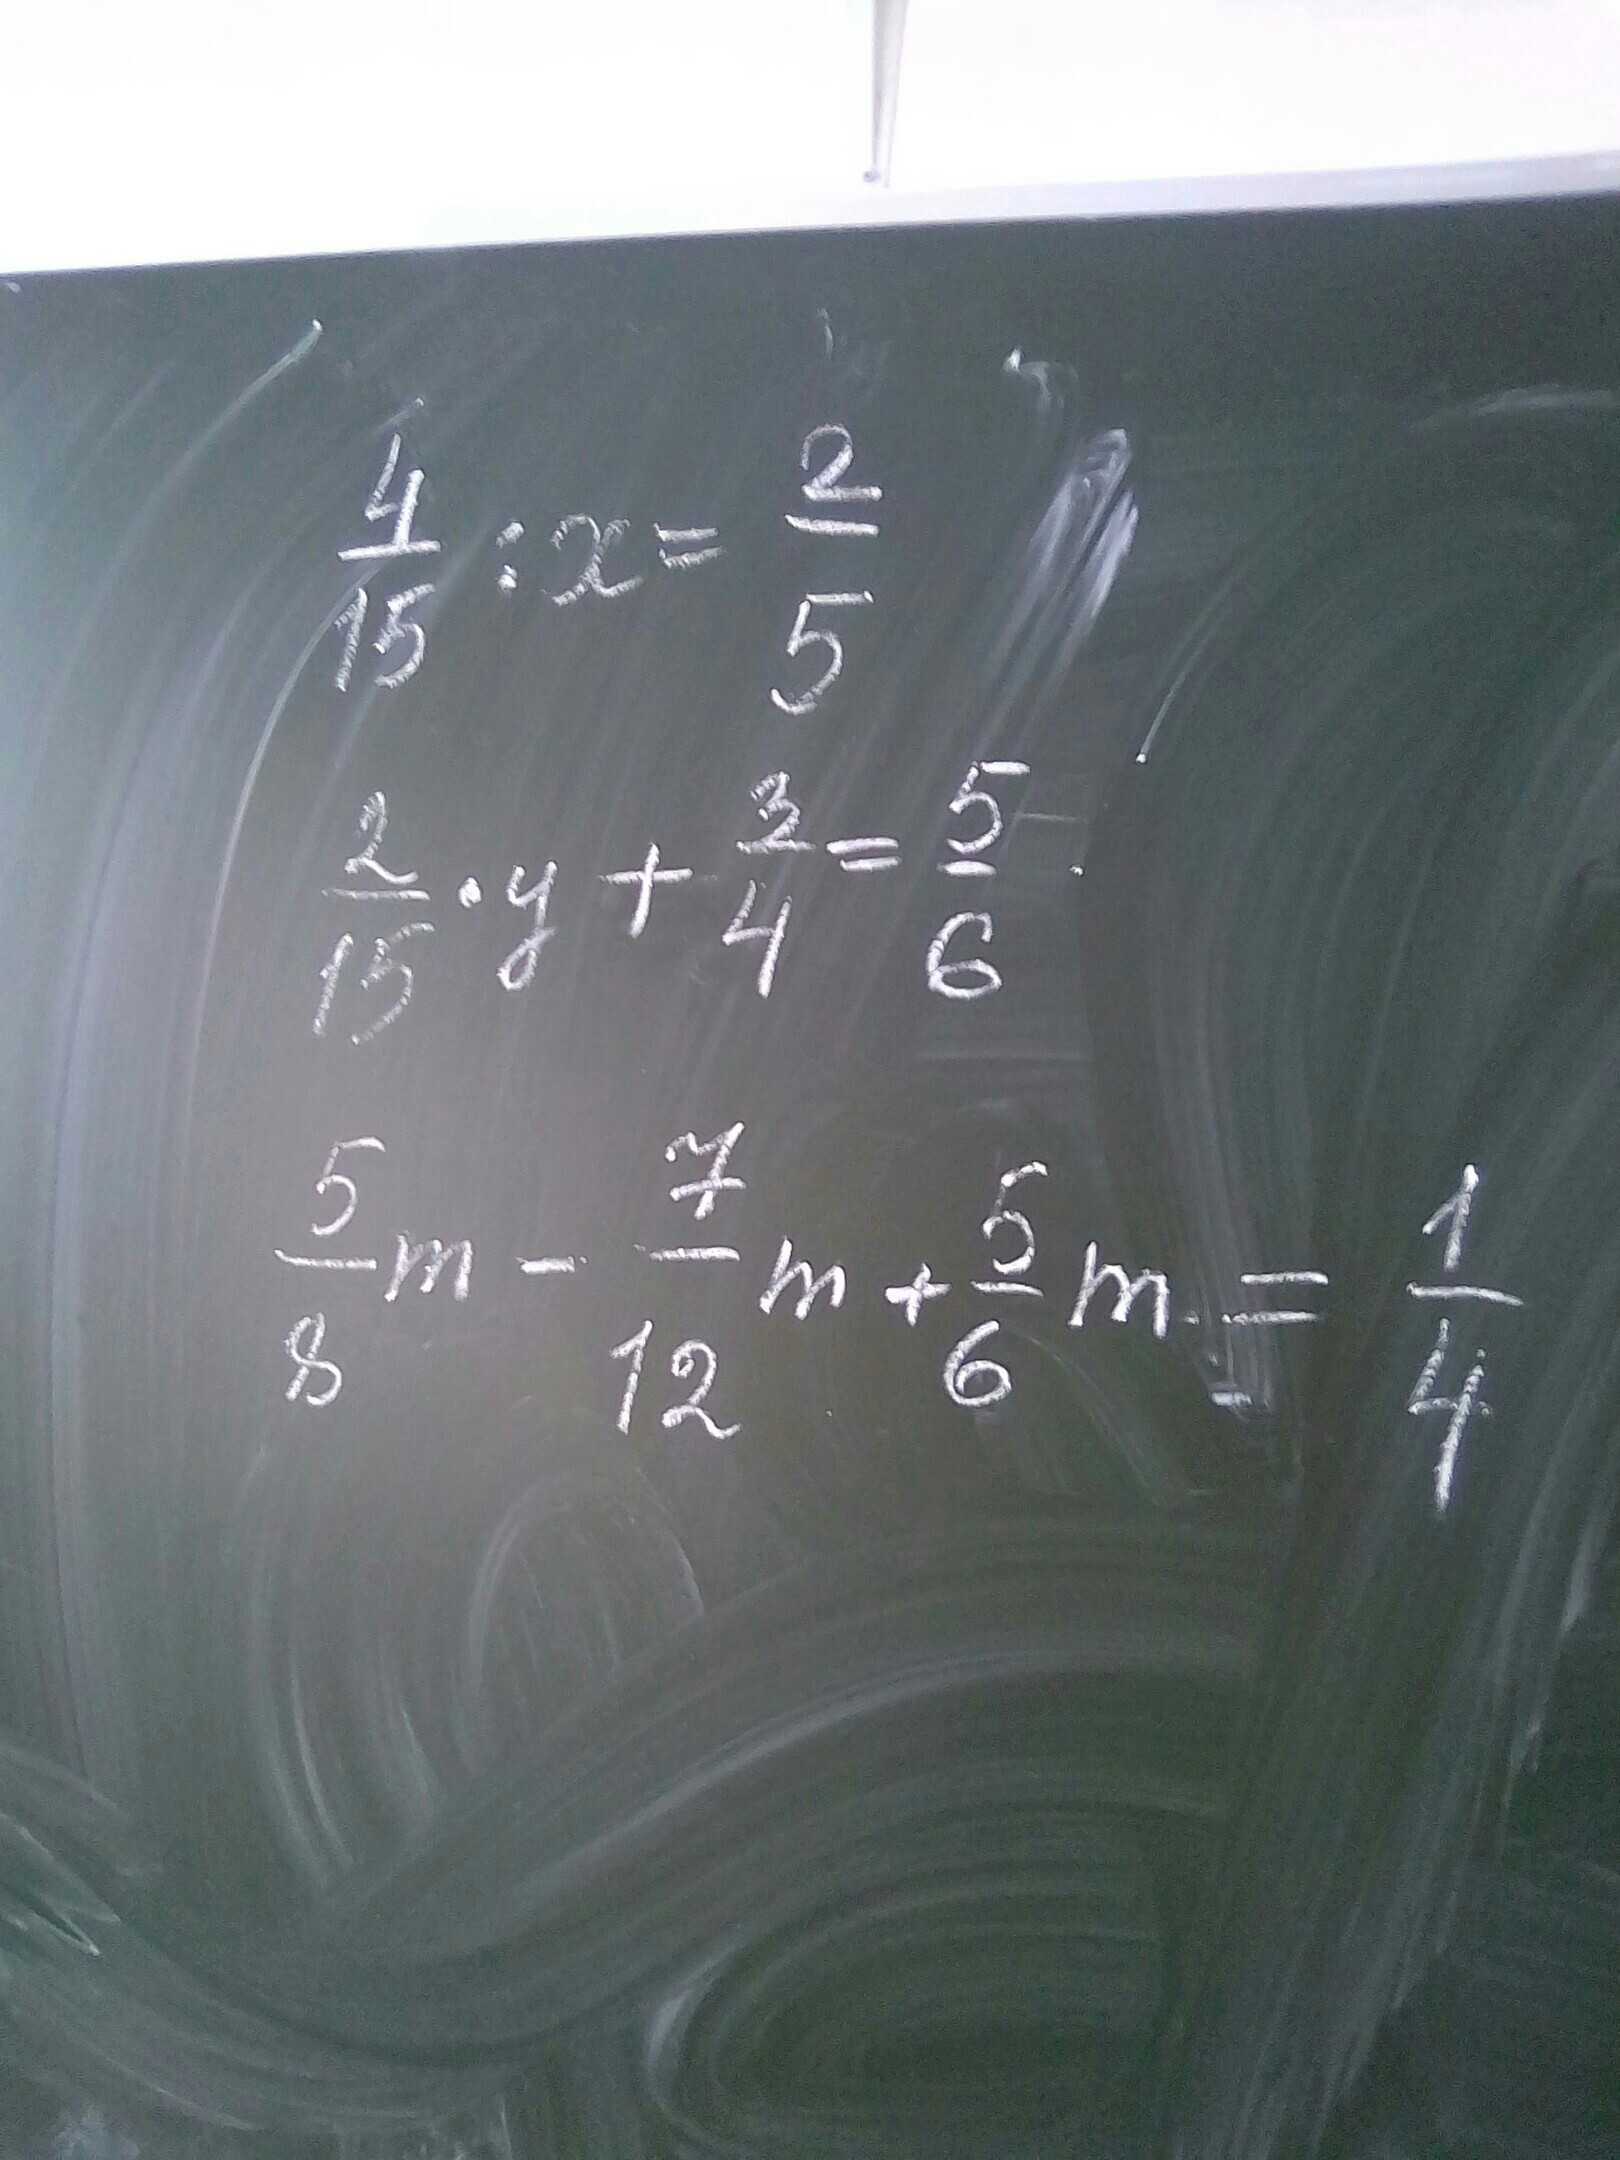 4/15 : x = 2/5
2/15 · y + 3/4 = 5/6
5/8 m - 7/12 m + 5/6 m = 1/4